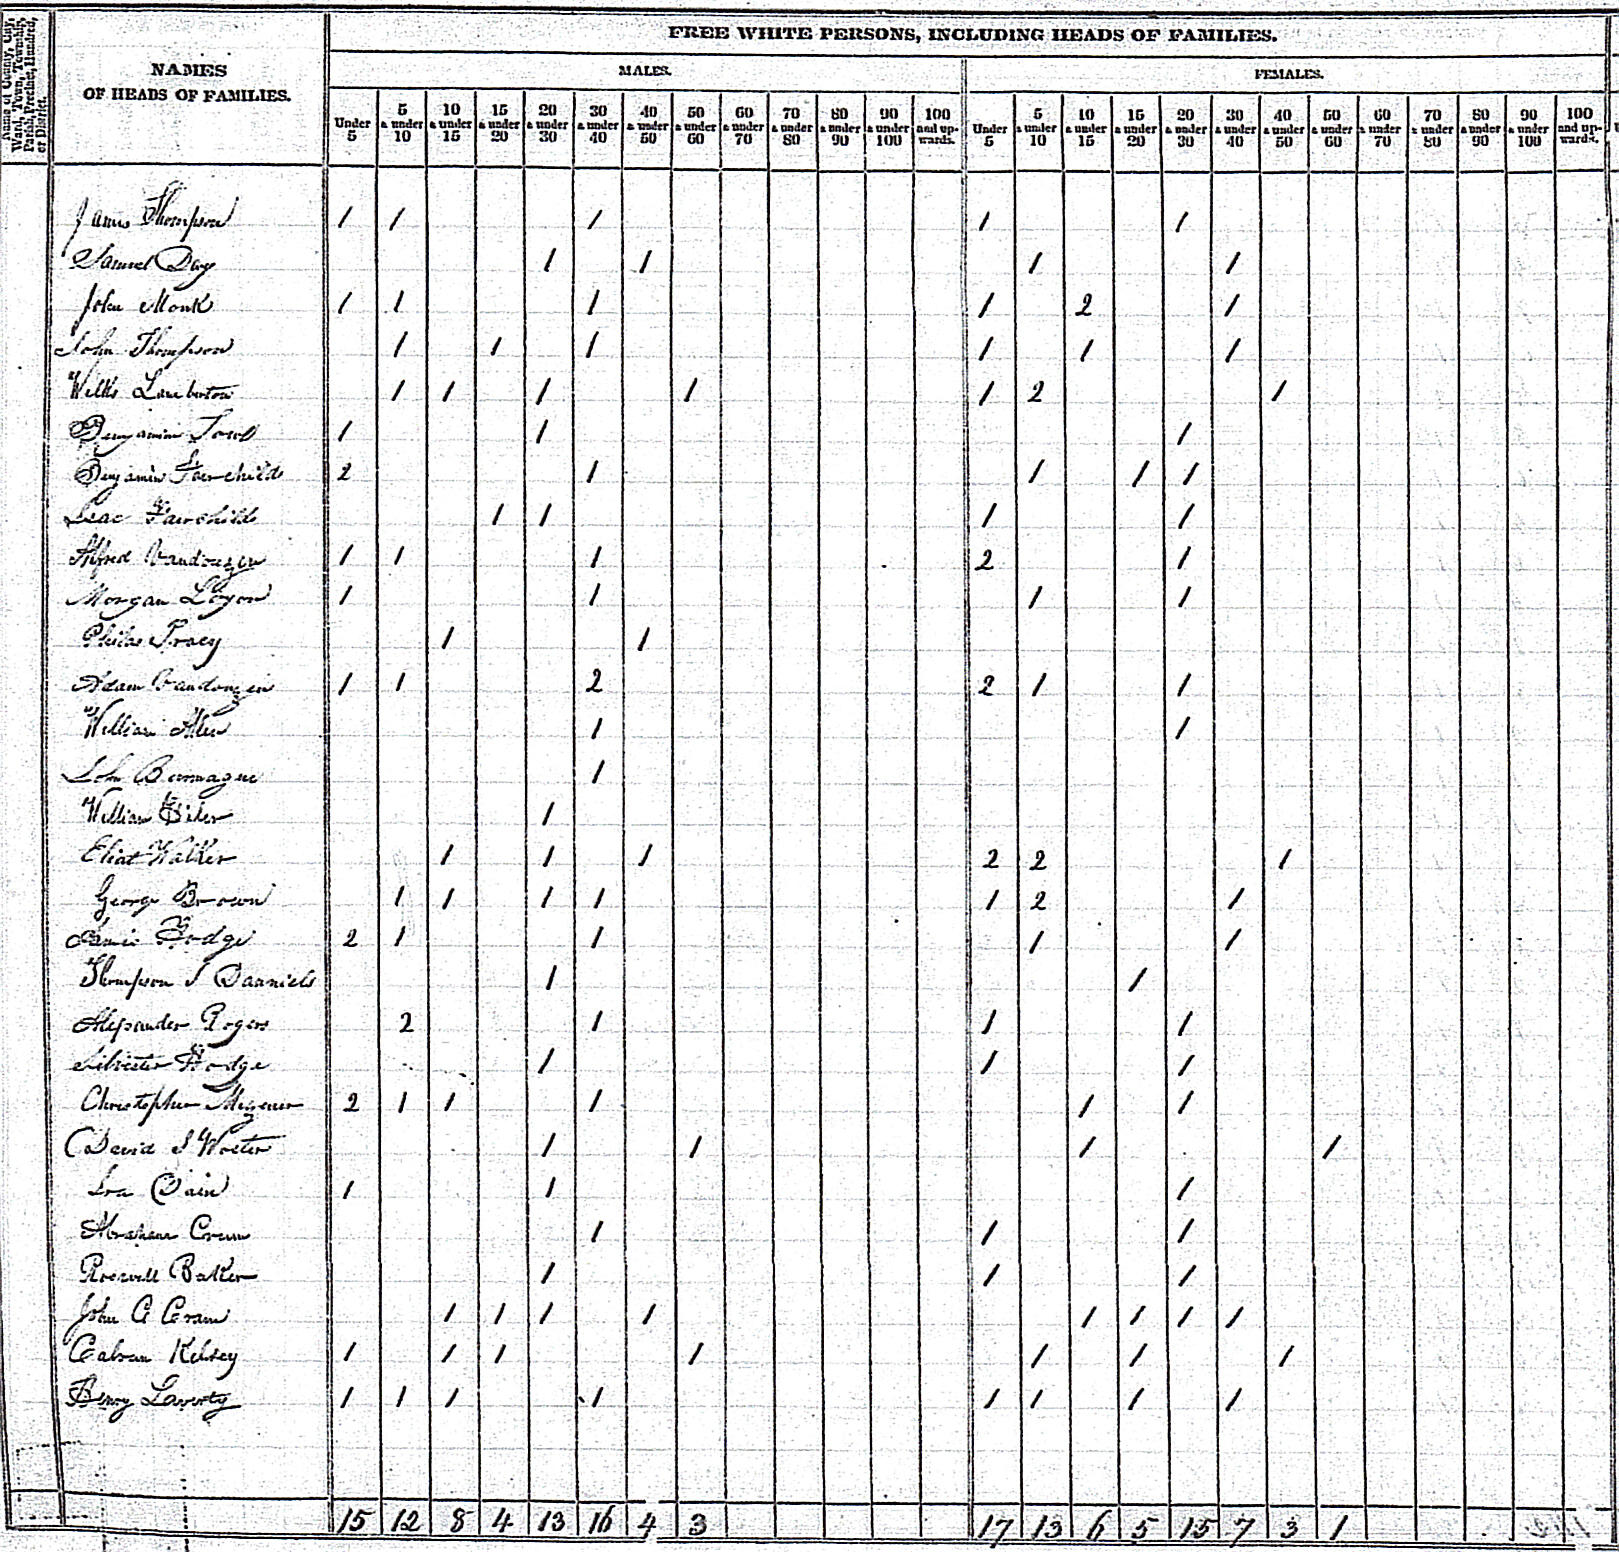 Name of County, City, Ward, Town, Township, Parish, Precinct, Hundred, or District.
NAMES OF HEADS OF FAMILIES.
FREE WHITE PERSONS, INCLUDING HEADS OF FAMILIES.
MALES. FEMALES.
Under 5 | 5 & under 10 | 10 & under 15 | 15 & under 20 | 20 & under 30 | 30 & under 40 | 40 & under 50 | 50 & under 60 | 60 & under 70 | 70 & under 80 | 80 & under 90 | 90 & under 100 | 100 and upwards. | Under 5 | 5 & under 10 | 10 & under 15 | 15 & under 20 | 20 & under 30 | 30 & under 40 | 40 & under 50 | 50 & under 60 | 60 & under 70 | 70 & under 80 | 80 & under 90 | 90 & under 100 | 100 and upwards.
James Thompson 1 1 1 1 1
Samuel Day 1 1 1 1
John Monk 1 1 1 1 2 1
John Thompson 1 1 1 1 1 1
Wells Lamberton 1 1 1 1 1 2 1
Benjamin 1 1 1
Benjamin Fairchilds 2 1 1 1 1
Isac Fairchilds 1 1 1 1
Alfred Vandouzen 1 1 1 2 1
Morgan 1 1 1 1
Tracy 1 1
Adam Vandouzen 1 1 2 2 1 1
William Allen 1 1
John 1
William 1
Eliat Walker 1 1 1 2 2 1
George Brown 1 1 1 1 1 2 1
Hodge 2 1 1 1 1
Thompson S Danniels 1 1
Alexander Rogers 2 1 1 1
Silvester Hodge 1 1 1
Christopher Mizener 2 1 1 1 1 1
David S 1 1 1 1
Ira Dain 1 1 1
Abraham 1 1 1
Roswell Baker 1 1 1
John C Cram 1 1 1 1 1 1 1 1
Calvan Kelsey 1 1 1 1 1 1 1
Laverty 1 1 1 1 1 1 1 1
15 12 8 4 13 16 4 3 17 13 6 5 15 7 3 1